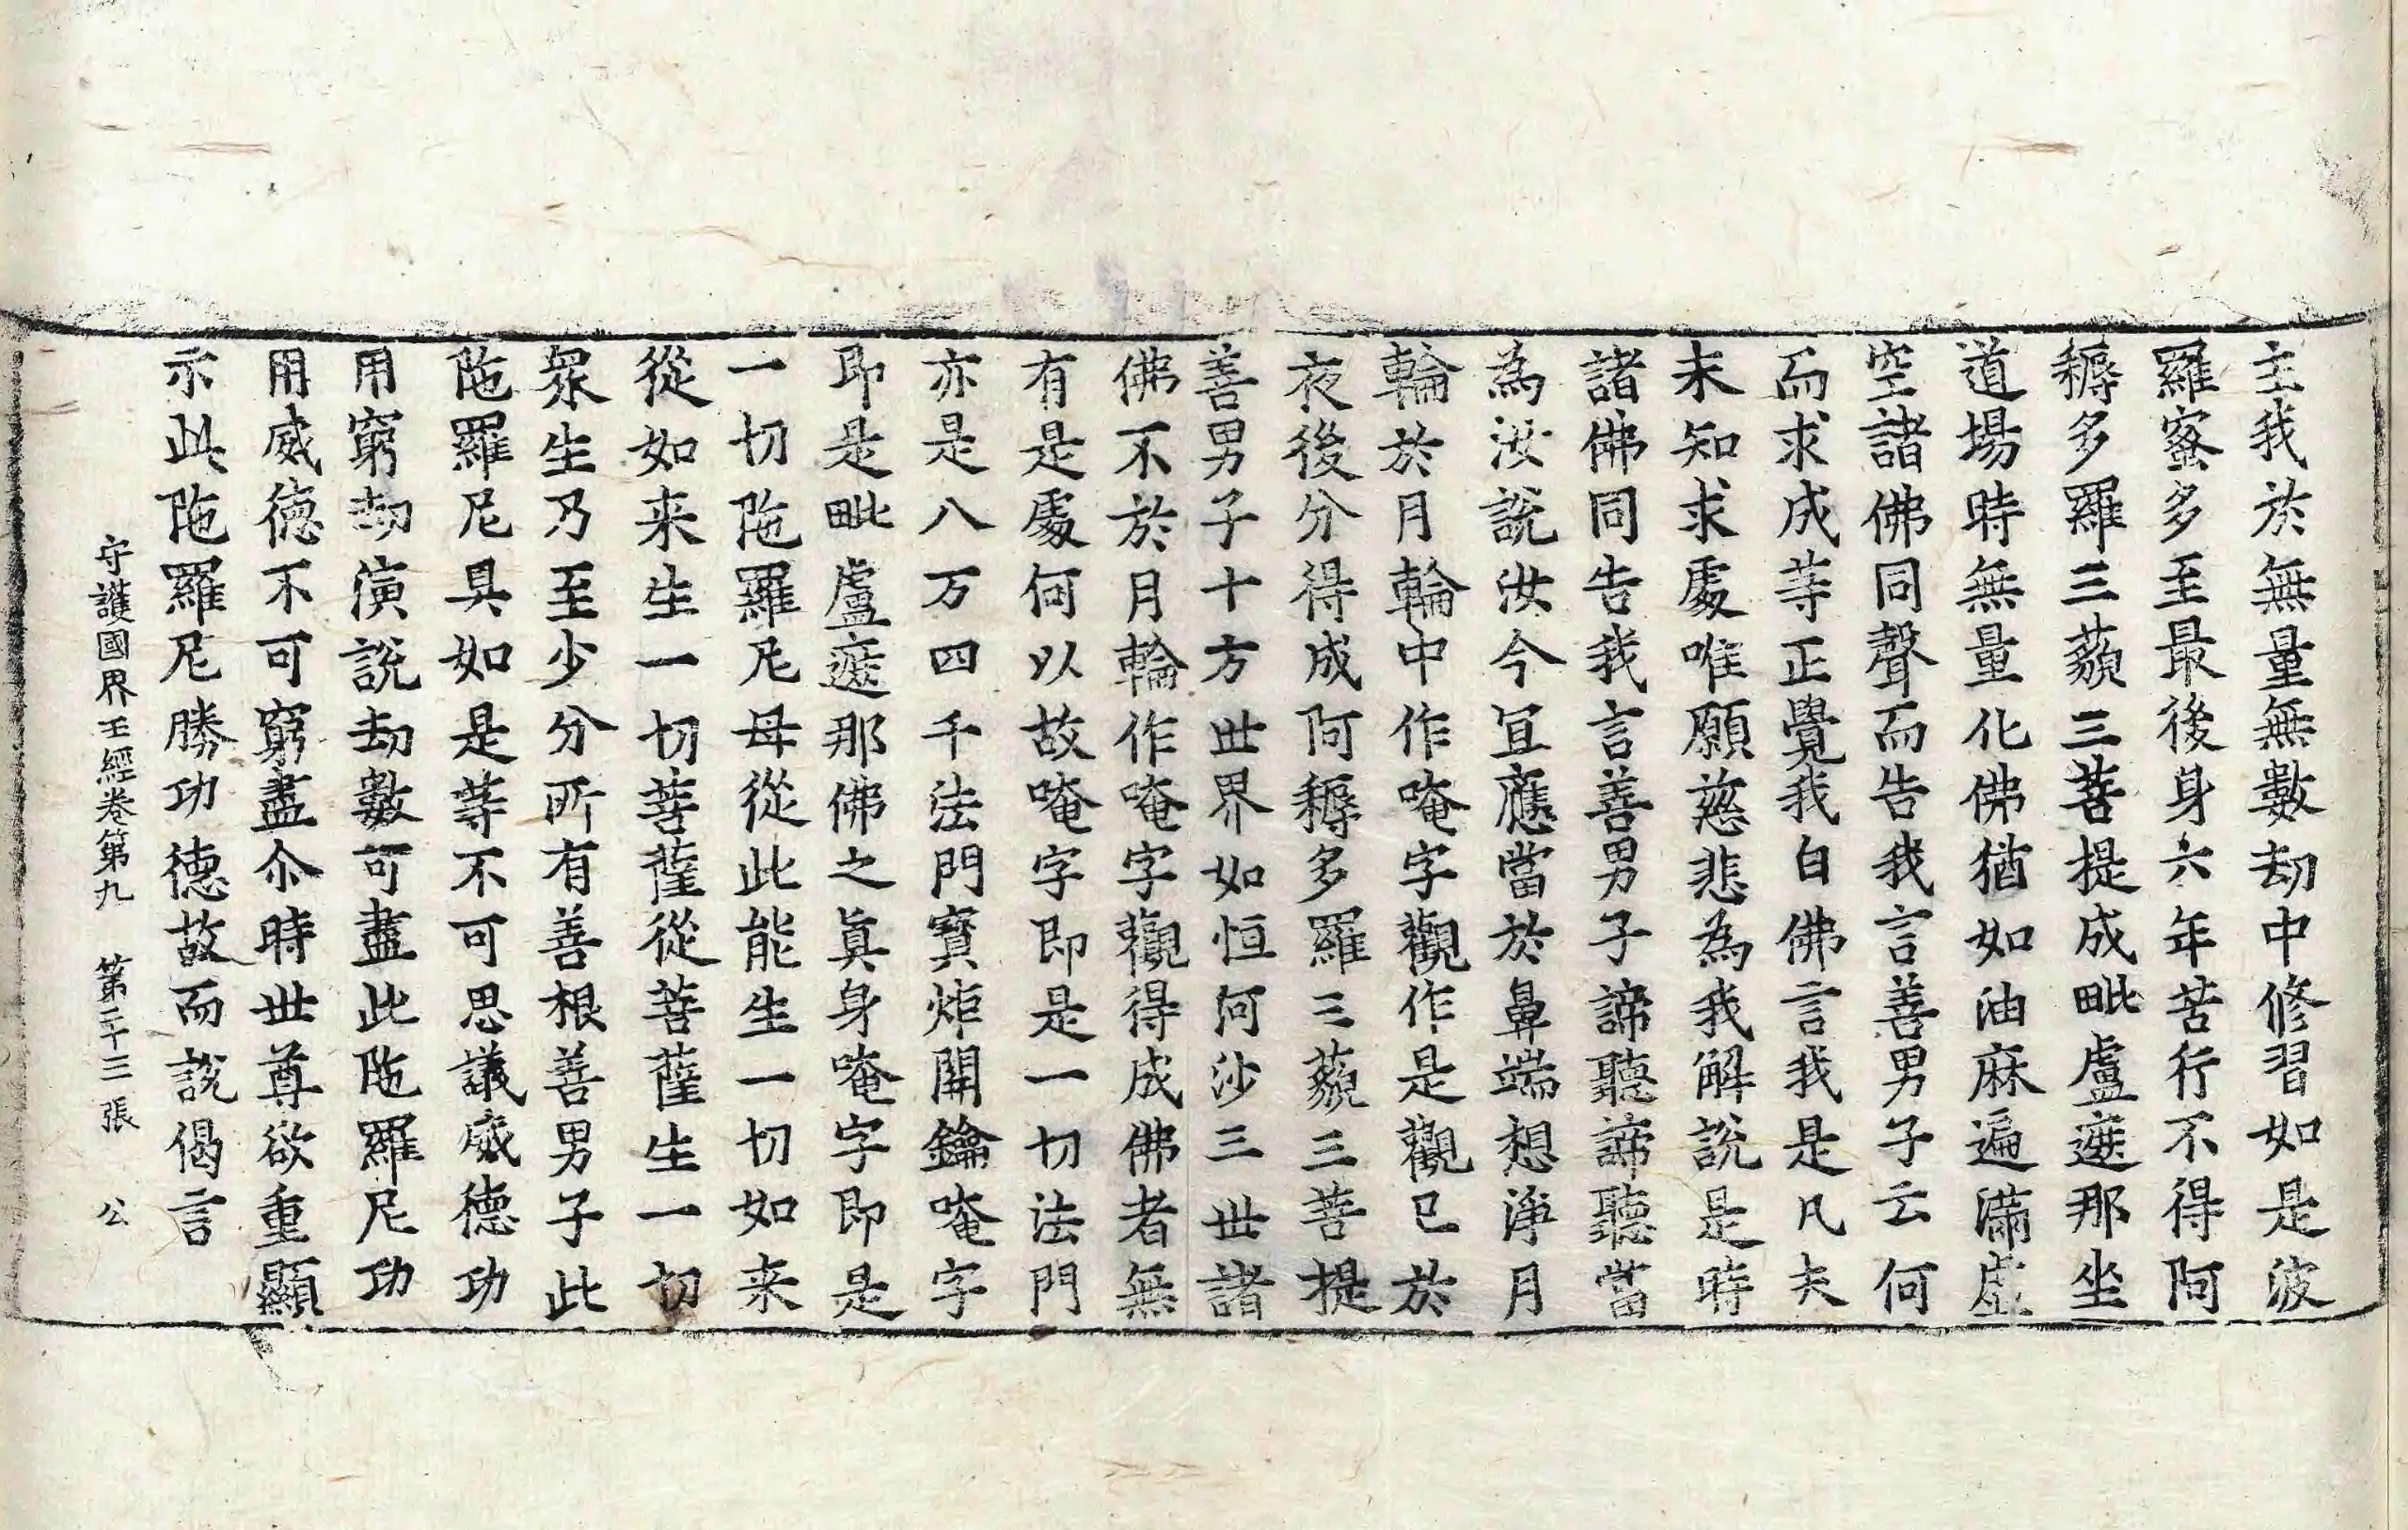 主我於無量無數劫中修習如是波
羅蜜多至最後身六年苦行不得阿
耨多羅三藐三菩提成毗盧遮那坐
道場時無量化佛猶如油麻遍滿虛
空諸佛同聲而告我言善男子云何
而求成等正覺我白佛言我是凡夫
未知求處唯願慈悲為我解說是時
諸佛同告我言善男子諦聽諦聽當
為汝說汝今宜應當於鼻端想淨月
輪於月輪中作唵字觀作是觀已於
夜後分得成阿耨多羅三藐三菩提
善男子十方世界如恒河沙三世諸
佛不於月輪作唵字觀得成佛者無
有是處何以故唵字即是一切法門
亦是八万四千法門寶炬開鑰唵字
即是毗盧遮那佛之真身唵字即是
一切陁羅尼母從此能生一切如来
從如来生一切菩薩從菩薩生一切
衆生乃至少分所有善根善男子此
陁羅尼具如是等不可思議威德功
用窮劫演說劫數可盡此陁羅尼功
用威德不可窮盡尒時世尊欲重顯
示此陁羅尼勝功德故而說偈言
守護國界主經卷第九 第二十三張 公